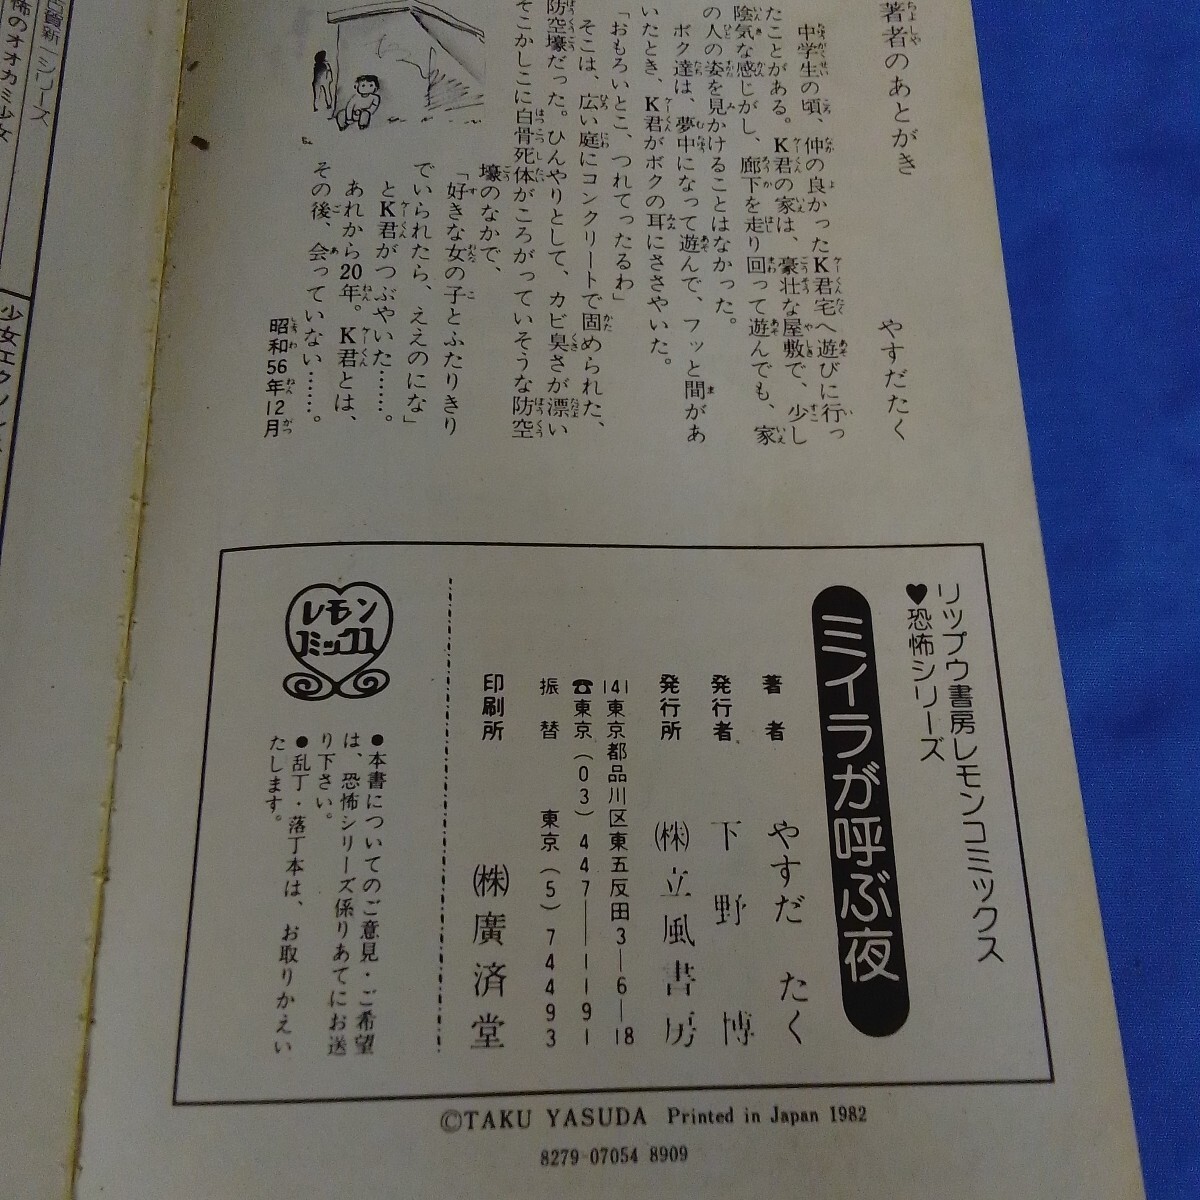 著者のあとがき
やすだたく
中学生の頃、仲の良かったK君宅へ遊びに行っ
たことがある。K君の家は、豪壮な屋敷で、少し
陰気な感じがし、廊下を走り回って遊んでも、家
の人の姿を見かけることはなかった。
ボク達は、夢中になって遊んで、フッと間があ
いたとき、K君がボクの耳にささやいた。
「おもろいとこ、つれてったるわ」
そこは、広い庭にコンクリートで固められた、
防空壕だった。ひんやりとして、カビ臭さが漂い
そこかしこに白骨死体がころがっていそうな防空
壕のなかで、
「好きな女の子とふたりきり
でいられたら、ええのにな」
とK君がつぶやいた……。
あれから20年。K君とは、
その後、会っていない……。
昭和56年12月
リップウ書房レモンコミックス
♥恐怖シリーズ
ミイラが呼ぶ夜
著者 やすだ たく
発行者 下野 博
発行所 (株)立風書房
141東京都品川区東五反田3-6-18
☎東京(03)447-1191
振替 東京(5)74493
印刷所 (株)廣済堂
レモン
コミックス
●本書についてのご意見・ご希望
は、恐怖シリーズ係りあてにお送
り下さい。
●乱丁・落丁本は、お取りかえい
たします。
©TAKU YASUDA Printed in Japan 1982
8279-07054 8909
古賀新一シリーズ
怖のオオカミ少女